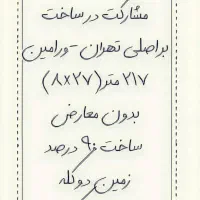 مشارکت در ساخت
بر اصلی تهران - ورامین
۲۱۷ متر (۲۷×۸)
بدون معارض
ساخت ۹۰ درصد
زمین دو کله